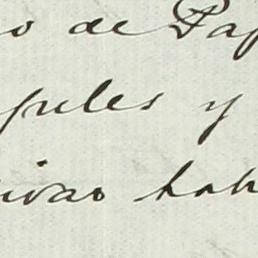 o de Pap
pules y
ivas hab